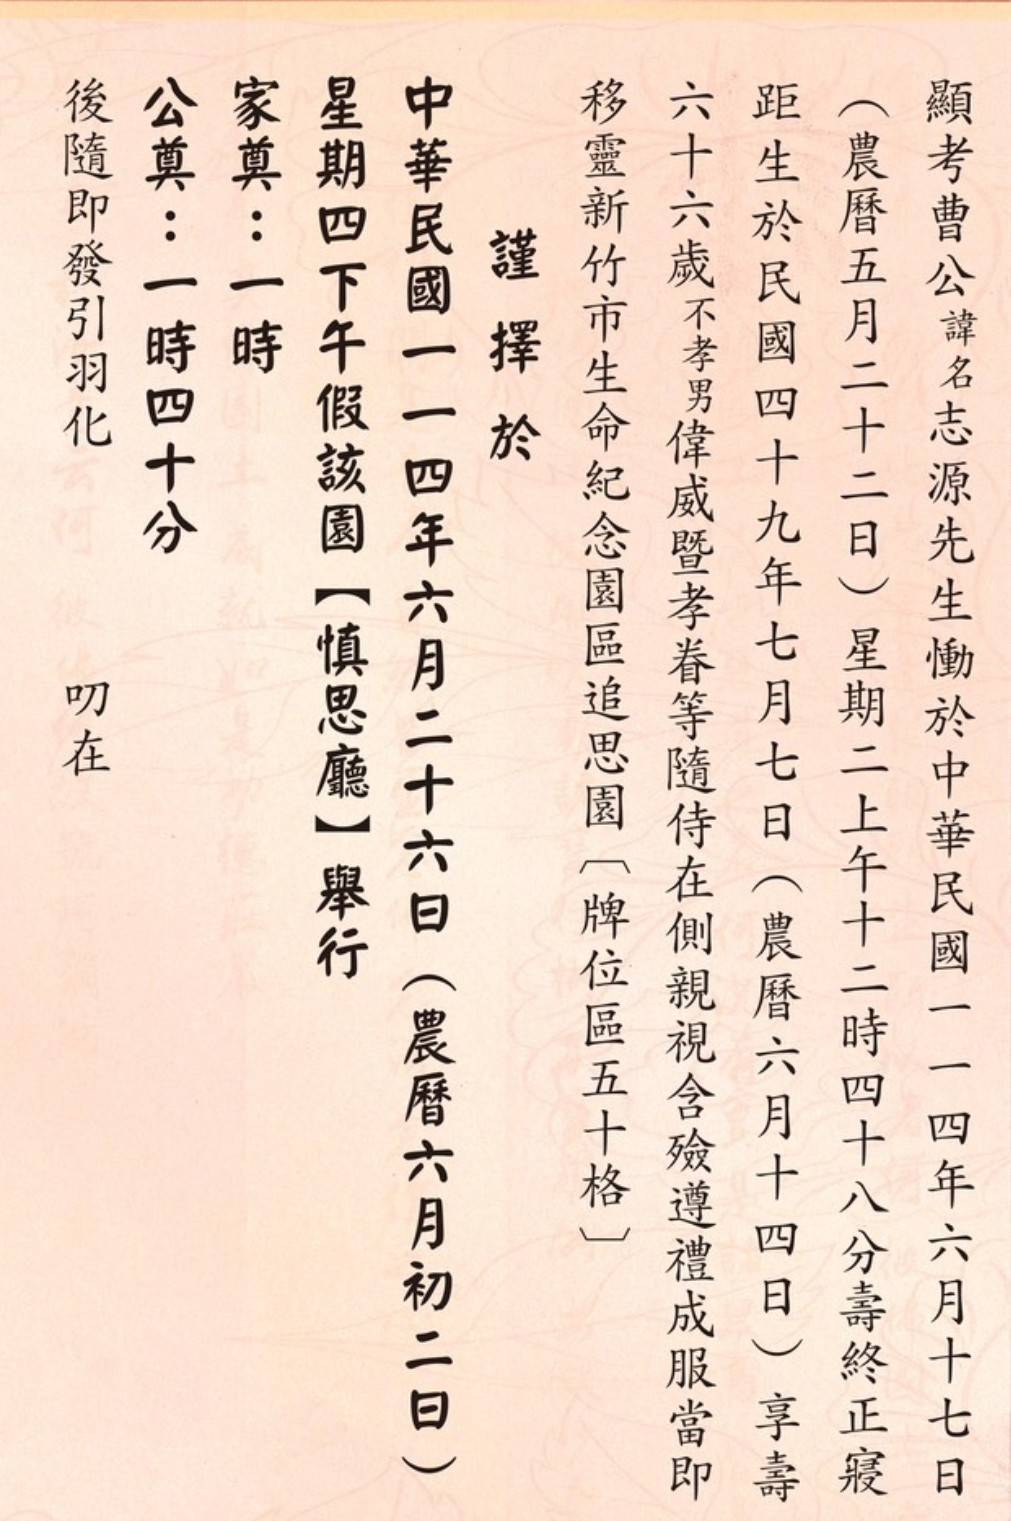 顯考曹公諱名志源先生慟於中華民國一一四年六月十七日
（農曆五月二十二日）星期二上午十二時四十八分壽終正寢
距生於民國四十九年七月七日（農曆六月十四日）享壽
六十六歲不孝男偉威暨孝眷等隨侍在側親視含殮遵禮成服當即
移靈新竹市生命紀念園區追思園〔牌位區五十格〕
謹擇於
中華民國一一四年六月二十六日（農曆六月初二日）
星期四下午假該園【慎思廳】舉行
家奠：一時
公奠：一時四十分
後隨即發引羽化　　叨在